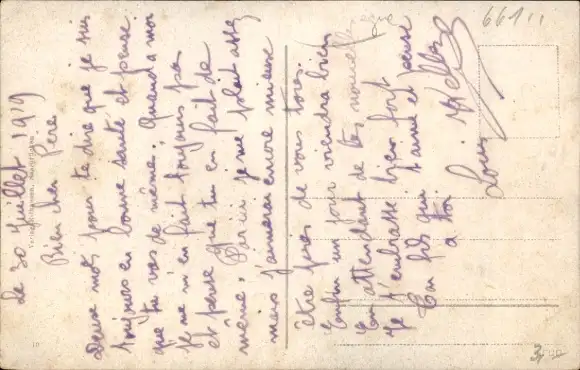 Le 30 Juillet 1919
Bien cher Pere
Deux mots pour te dire que je suis
toujours en bonne santé et pense
que tu vas de même. Quand a moi
je ne m'en fait toujours pas
et pense que tu en fait de
même. Par ici je me plait assez
mais j'aimerai encore mieux
être près de vous tous.
Enfin un jour viendra bien
En attendant de tes nouvelles
Je t'embrasse bien fort
Ton fils qui t'aime et pense
a toi
Louis
6611
3